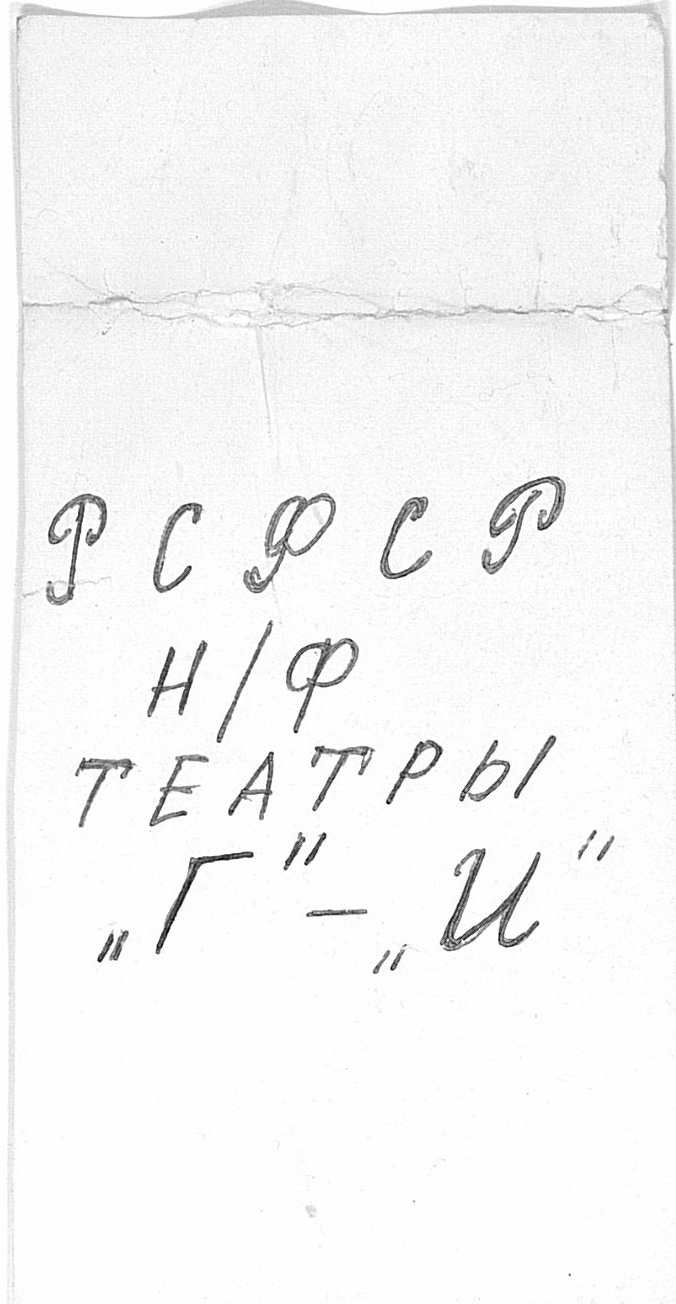 РСФСР
Н/Ф
ТЕАТРЫ
„Г" – „И"